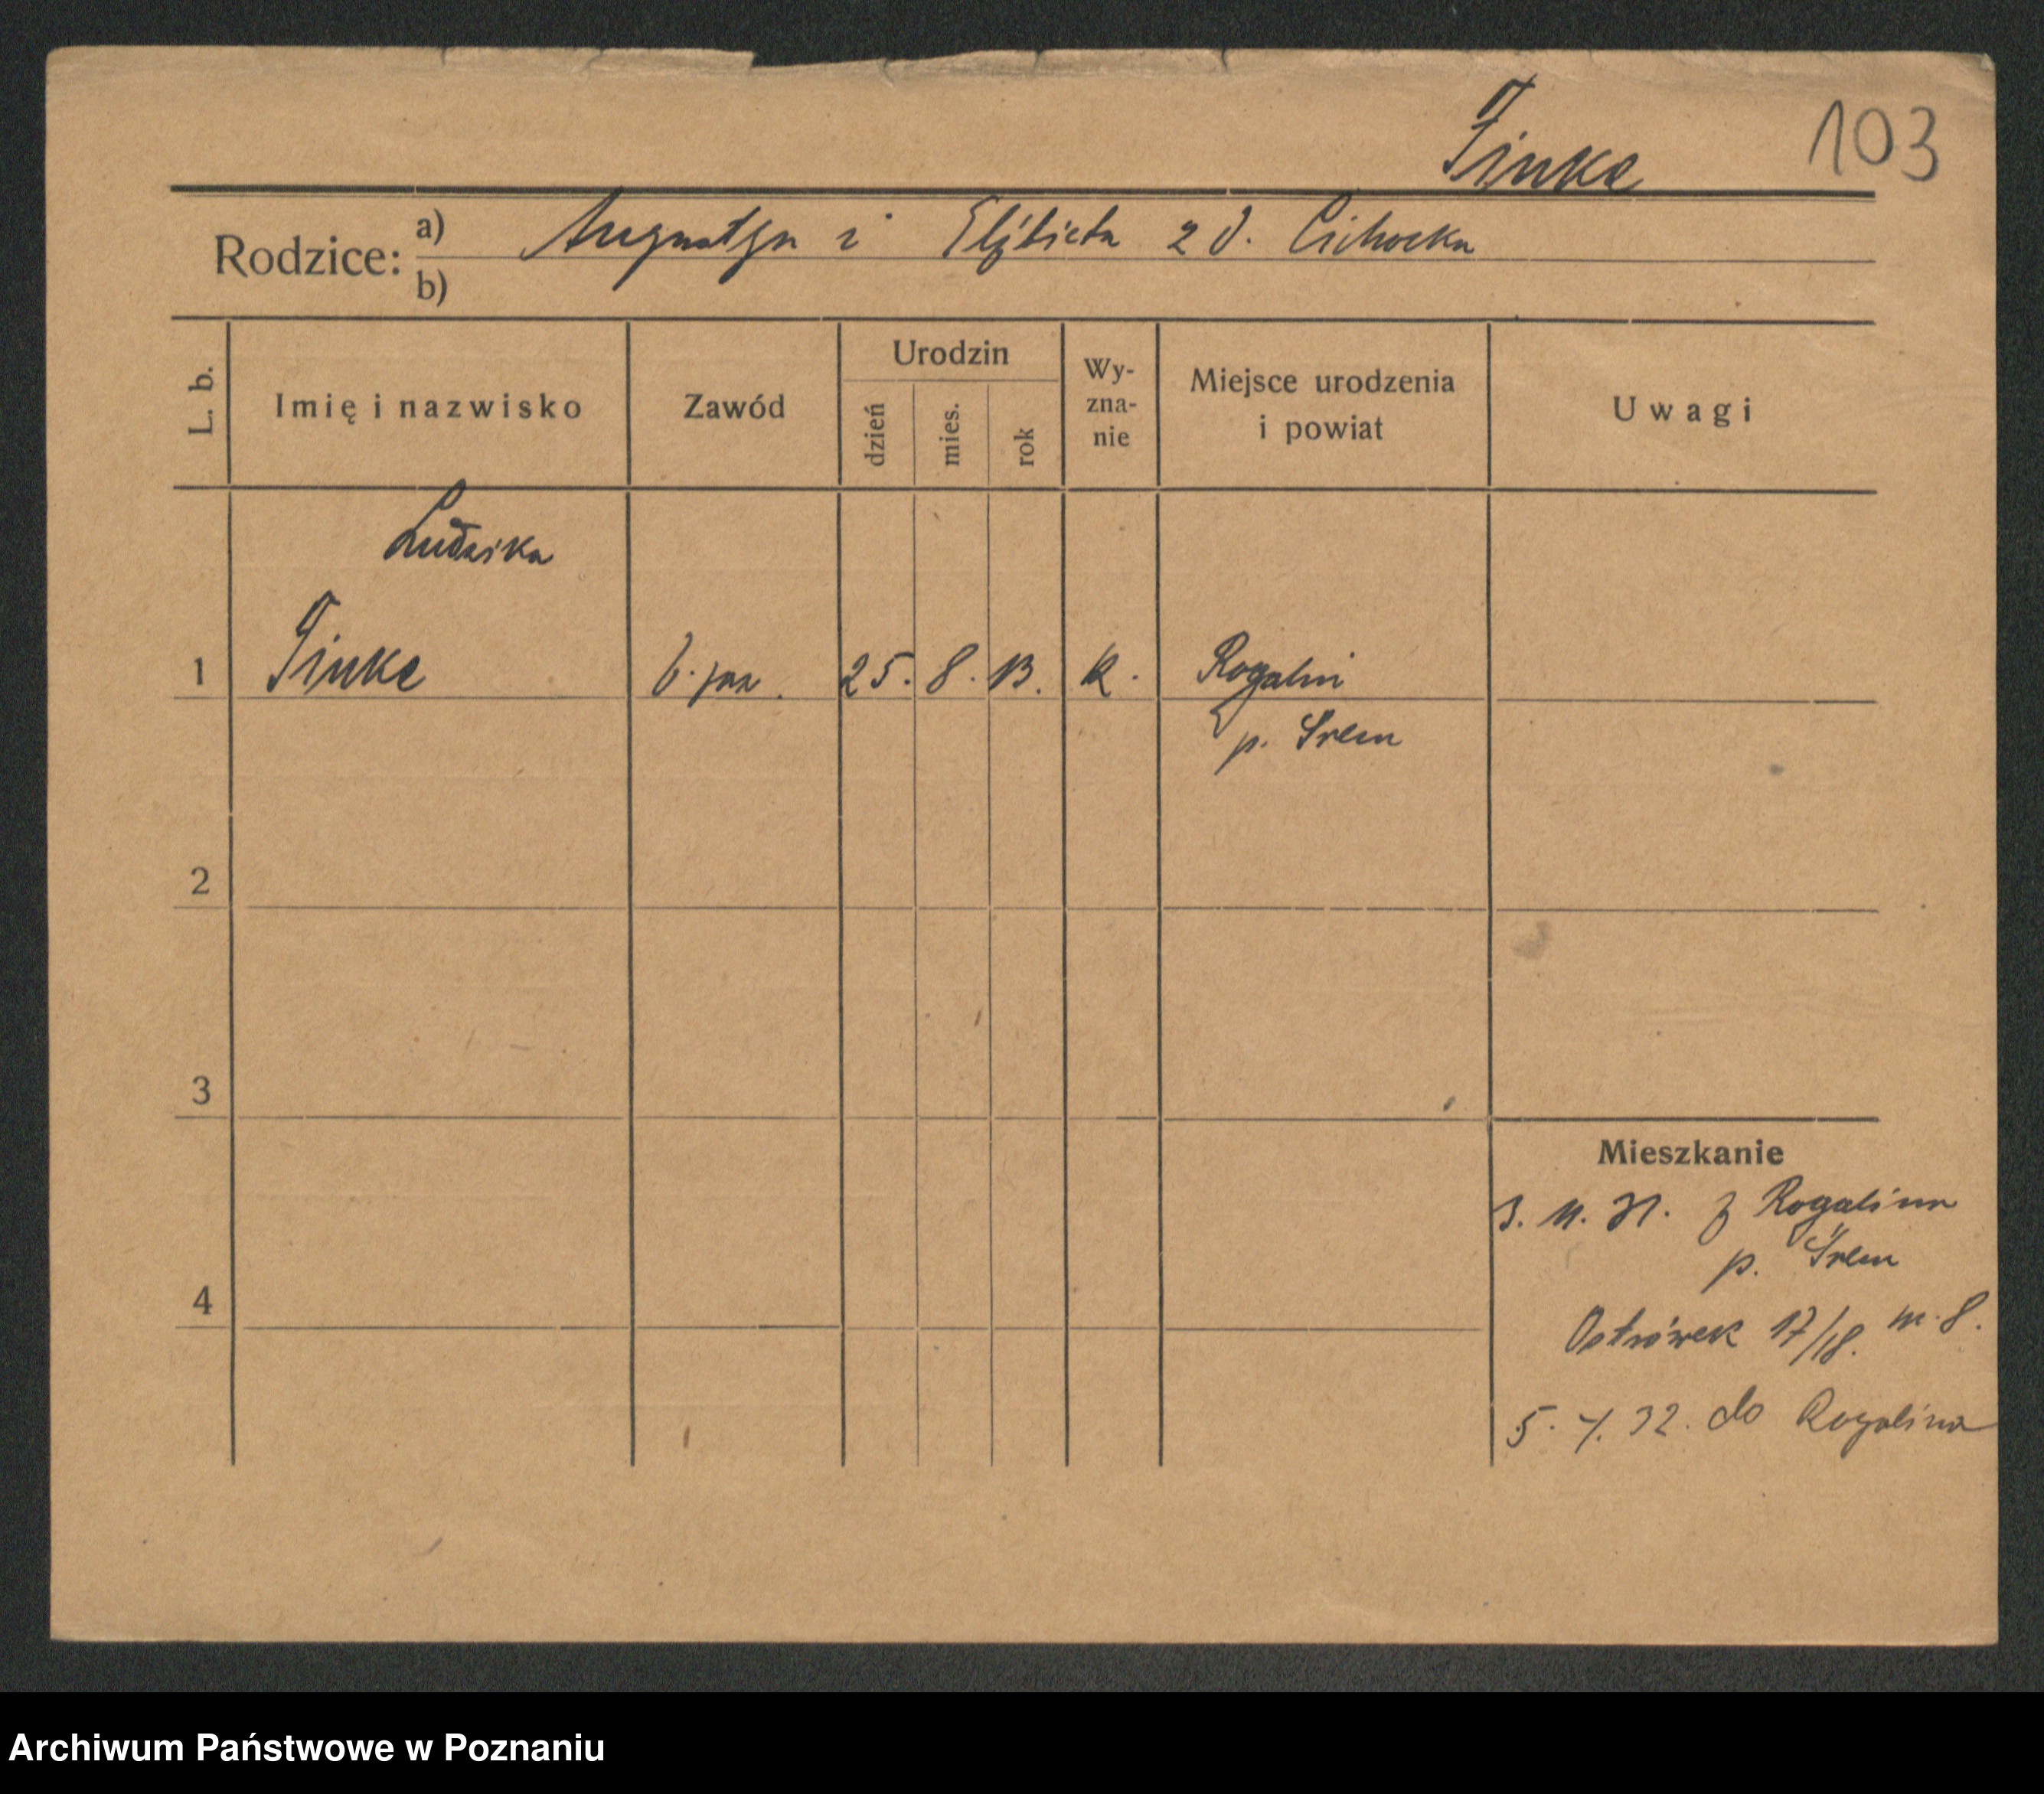 103
Finke
Rodzice: a) Augustyn i Elżbieta z d. Cichocka
b)
L. b.
Imię i nazwisko
Zawód
Urodzin
dzień
mies.
rok
Wy-
zna-
nie
Miejsce urodzenia
i powiat
Uwagi
Ludwika
1 Finke 25. 8. 13. k. Rogalin
p. Śrem
2
3
Mieszkanie
3. 11. 31. z Rogalina
p. Śrem
4
Ostrówek 17/18. m. 8.
5. 32. do Rogalina
Archiwum Państwowe w Poznaniu